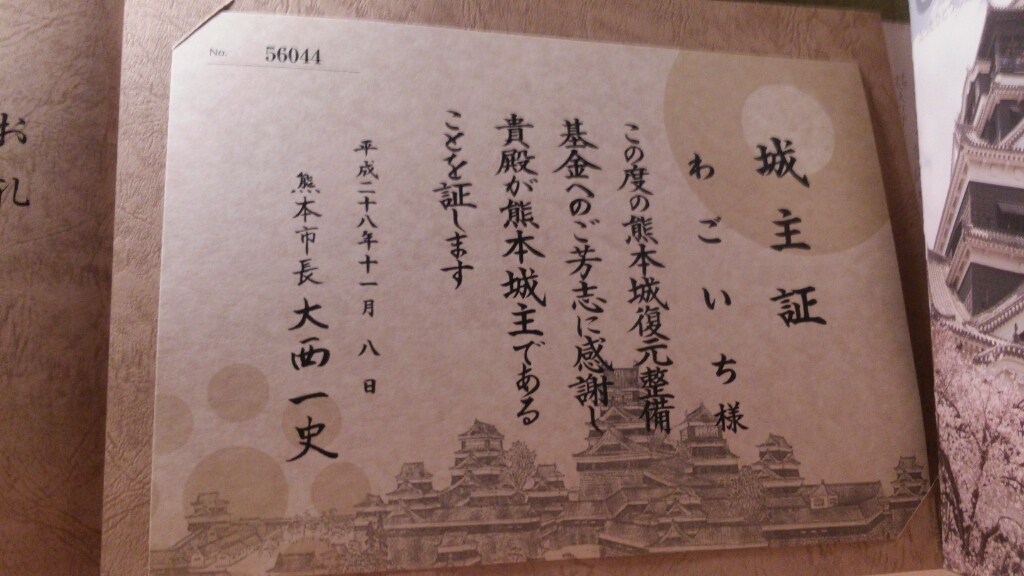 No. 56044
城主証
わごいち様
この度の熊本城復元整備
基金へのご芳志に感謝し
貴殿が熊本城主である
ことを証します
平成二十八年十一月八日
熊本市長 大西一史
お礼